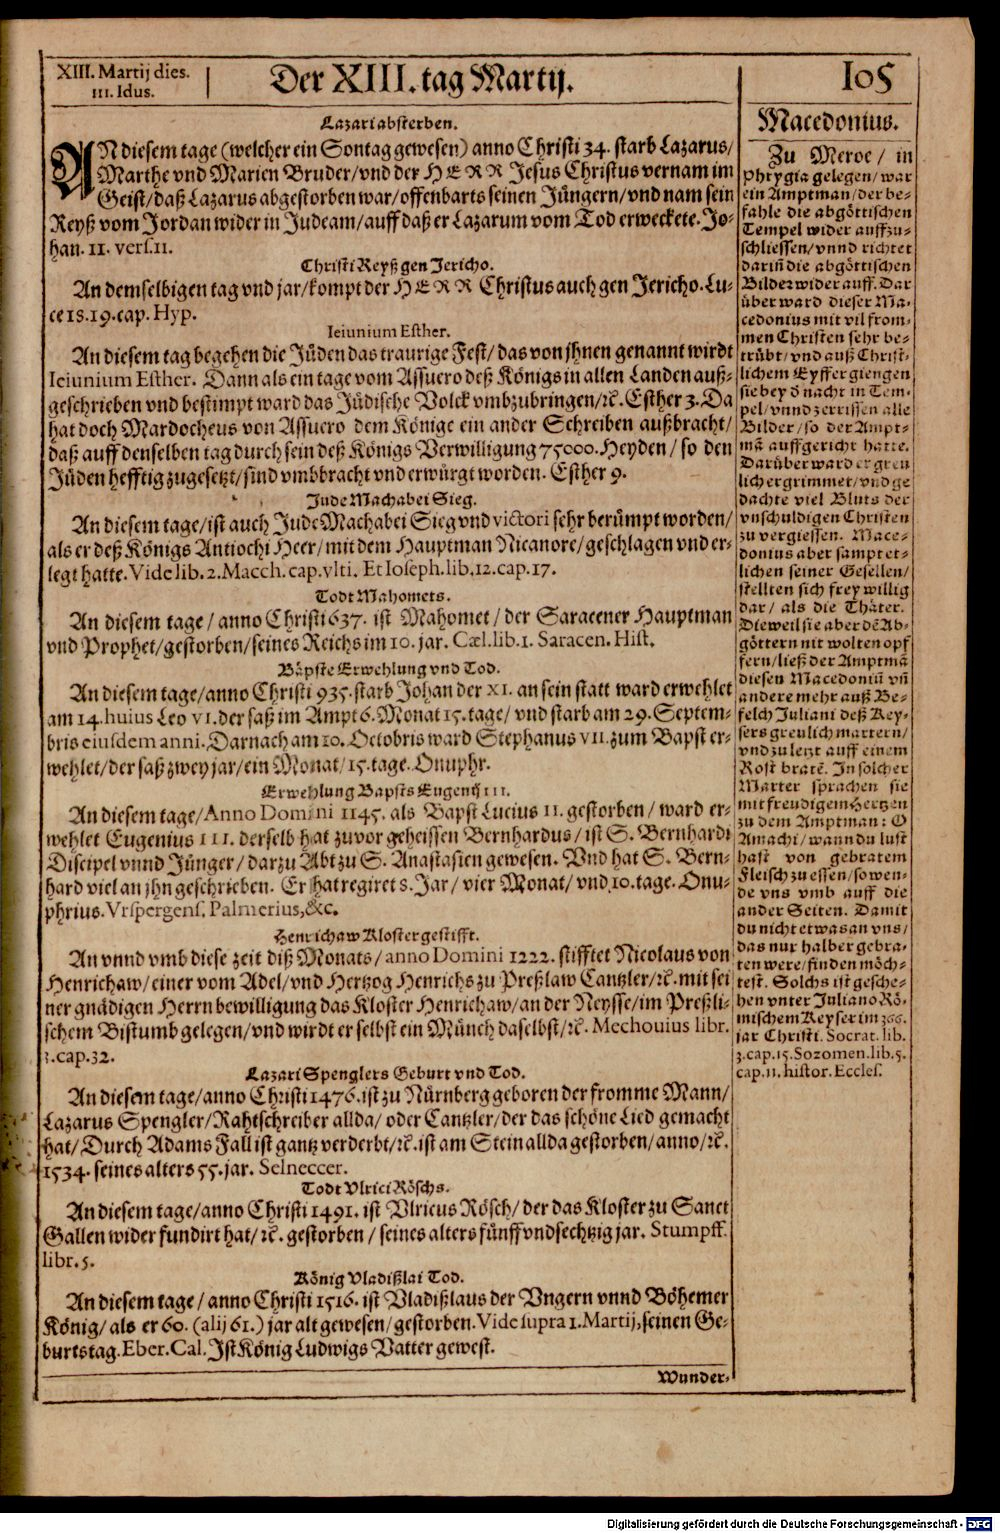 XIII. Martij dies.
III. Idus.
Der XIII. tag Martij.
105
Lazari absterben.
AN diesem tage (welcher ein Sontag gewesen) anno Christi 34. starb Lazarus/
Marthe vnd Marien Bruder/vnd der HERR Jesus Christus vernam im
Geist/daß Lazarus abgestorben war/offenbarts seinen Jüngern/vnd nam sein
Reyß vom Jordan wider in Judeam/auff daß er Lazarum vom Tod erweckete. Jo-
han. 11. vers.11.
Christi Reyß gen Jericho.
An demselbigen tag vnd jar/kompt der HERR Christus auch gen Jericho. Lu-
ce 18.19.cap. Hyp.
Ieiunium Esther.
An diesem tag begehen die Jüden das traurige Fest/das von jhnen genannt wirdt
Ieiunium Esther. Dann als ein tage vom Assuero deß Königs in allen Landen auß-
geschrieben vnd bestimpt ward das Jüdische Volck vmbzubringen/ꝛc. Esther 3. Da
hat doch Mardocheus von Assuero dem Könige ein ander Schreiben außbracht/
daß auff denselben tag durch sein deß Königs Verwilligung 75000. Heyden/ so den
Jüden hefftig zugesetzt/sind vmbbracht vnd erwürgt worden. Esther 9.
Jude Machabei Sieg.
An diesem tage/ist auch Jude Machabei Sieg vnd victori sehr berümpt worden/
als er deß Königs Antiochi Heer/mit dem Hauptman Nicanore/geschlagen vnd er-
legt hatte. Vide lib. 2. Macch. cap. vlti. Et Ioseph. lib. 12. cap. 17.
Todt Mahomets.
An diesem tage / anno Christi 637. ist Mahomet / der Saracener Hauptman
vnd Prophet/gestorben/seines Reichs im 10. jar. Cæl. lib. 1. Saracen. Hist.
Bäpste Erwehlung vnd Tod.
An diesem tage/anno Christi 935. starb Johan der XI. an sein statt ward erwehlet
am 14. huius Leo VI. der saß im Ampt 6. Monat 15. tage/ vnd starb am 29. Septem-
bris eiusdem anni. Darnach am 10. Octobris ward Stephanus VII. zum Bapst er-
wehlet/der saß zwey jar/ein Monat/ 15. tage. Onuphr.
Erwehlung Bapsts Eugenij III.
An diesem tage/Anno Domini 1145. als Bapst Lucius II. gestorben / ward er-
wehlet Eugenius III. derselb hat zuvor geheissen Bernhardus / ist S. Bernhardi
Discipel vnnd Jünger / darzu Abt zu S. Anastasien gewesen. Vnd hat S. Bern-
hard viel an jhn geschrieben. Er hat regiret 8. Jar / vier Monat/ vnd 10. tage. Onu-
phrius. Vrspergens. Palmerius, &c.
Henrichaw Kloster gestifft.
An vnnd vmb diese zeit diß Monats / anno Domini 1222. stifftet Nicolaus von
Henrichaw/einer vom Adel/vnd Hertzog Henrichs zu Preßlaw Cantzler/ꝛc. mit sei
ner gnädigen Herrn bewilligung das Kloster Henrichaw/an der Neysse/im Preßli-
schem Bistumb gelegen/vnd wirdt er selbst ein Münch daselbst/ꝛc. Mechouius libr.
3. cap. 32.
Lazari Spenglers Geburt vnd Tod.
An diesem tage/anno Christi 1476. ist zu Nürnberg geboren der fromme Mann/
Lazarus Spengler/Rahtschreiber allda/ oder Cantzler/der das schöne Lied gemacht
hat/ Durch Adams Fall ist gantz verderbt/ꝛc. ist am Stein allda gestorben/anno/ꝛc.
1534. seines alters 55. jar. Selneccer.
Todt Vlrici Röschs.
An diesem tage/anno Christi 1491. ist Vlricus Rösch/ der das Kloster zu Sanct
Gallen wider fundirt hat/ ꝛc. gestorben / seines alters fünff vnd sechtzig jar. Stumpff.
libr. 5.
König Vladißlai Tod.
An diesem tage / anno Christi 1516. ist Vladißlaus der Vngern vnnd Böhemer
König/ als er 60. (alij 61.) jar alt gewesen/gestorben. Vide supra 1. Martij, seinen Ge-
burtstag. Eber. Cal. Ist König Ludwigs Vatter gewest.
Wunder-
Macedonius.
Zu Meroe / in
Phrygia gelegen/ war
ein Amptman/der be-
fahle die abgöttischen
Tempel wider auffzu-
schliessen/ vnnd richtet
dariñ die abgöttischen
Bilder wider auff. Dar
über ward dieser Ma-
cedonius mit vil from-
men Christen sehr be-
trübt/vnd auß Christ-
lichem Eyffer giengen
sie bey ď nacht in Tem-
pel/vnnd zerrissen alle
Bilder / so der Ampt-
mā auffgericht hatte.
Darüber ward er greu
lich ergrimmet/vnd ge
dachte viel Bluts der
vnschuldigen Christen
zu vergiessen. Mace-
donius aber sampt et-
lichen seiner Gesellen/
stellten sich frey willig
dar/ als die Thäter.
Dieweil sie aber dē Ab-
göttern nit wolten opf
fern/ließ der Amptmā
diesen Macedoniū vñ
andere mehr auß Be-
felch Juliani deß Key-
sers greulich martern/
vnd zu letzt auff einem
Rost bratē. In solcher
Marter sprachen sie
mit freudigem Hertzen
zu dem Amptman: O
Amachi/wann du lust
hast von gebratem
Fleisch zu essen/so wen-
de vns vmb auff die
ander Seiten. Damit
du nicht etwas an vns/
das nur halber gebra-
ten were/finden möch-
test. Solchs ist gesche-
hen vnter Juliano Rö-
mischem Keyser im 366.
jar Christi. Socrat. lib.
3. cap. 15. Sozomen. lib. 5.
cap. 11. histor. Eccles.
Digitalisierung gefördert durch die Deutsche Forschungsgemeinschaft - DFG